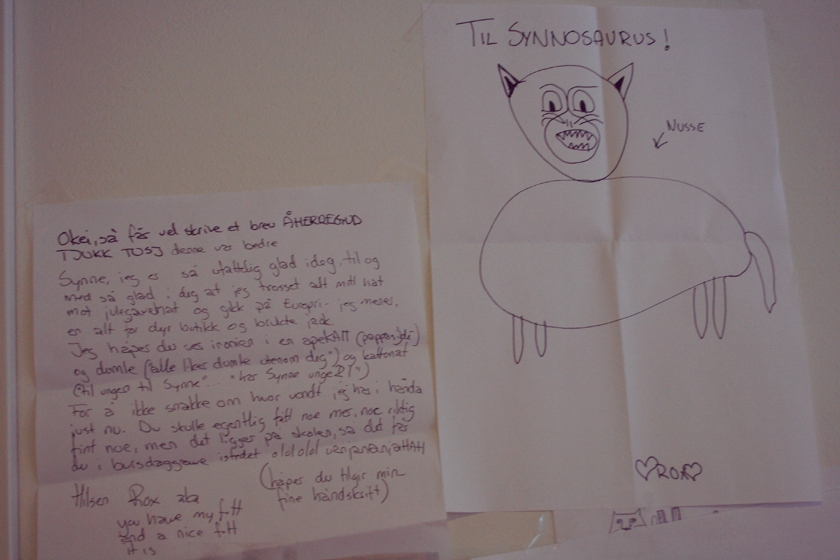 Okei, så får vel skrive et brev ÅHERREGUD
TJUKK TUSJ denne var bedre
Synne, jeg er så ufattlig glad idag, til og
med så glad i deg at jeg trosset alt mitt hat
mot julegavehat og gikk på Europri- jeg mener,
en alt for dyr butikk og brukte
Jeg håper du ser ironien i en apekatt
og dumle (alle liker dumle utenom deg") og kattemat
(til unger til Synne"... "har Synne unger?!")
For å ikke snakke om hvor vondt jeg har i hånda
just nu. Du skulle egentlig fått noe mer, noe riktig
fint noe, men det ligger på skolen, så det får
du i bursdaggave istedet ololol
Hilsen Rox aka
you have my
and a nice
it is
(håper du tilgir min
fine håndskrift)
TIL SYNNOSAURUS!
NUSSE
ROX